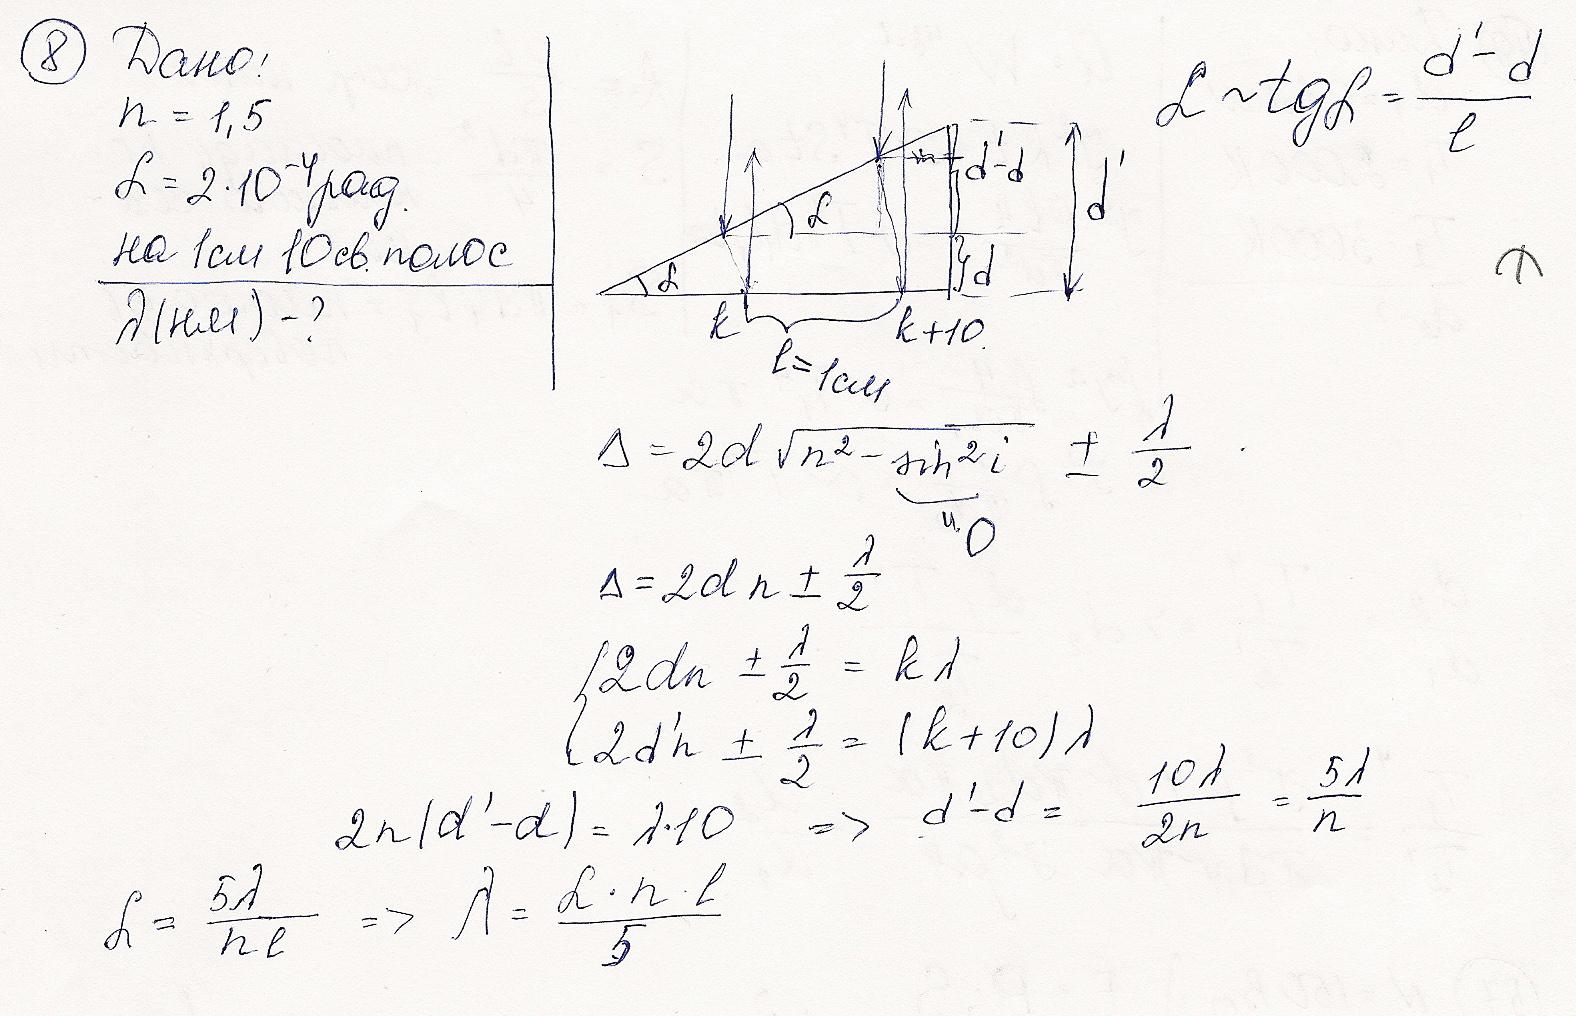 8 Дано:
n = 1,5
α = 2·10⁻⁴ рад.
на 1см 10 св. полос
λ(нм) - ?
α ~ tgα = (d' - d) / l
d' - d
d'
α
α
d
k
k+10.
l = 1см
Δ = 2d √(n² - sin²i) ± λ/2
0
Δ = 2dn ± λ/2
{ 2dn ± λ/2 = kλ
2d'n ± λ/2 = (k+10)λ
2n(d' - d) = λ·10 => d' - d = 10λ/2n = 5λ/n
α = 5λ/nl => λ = α·n·l/5